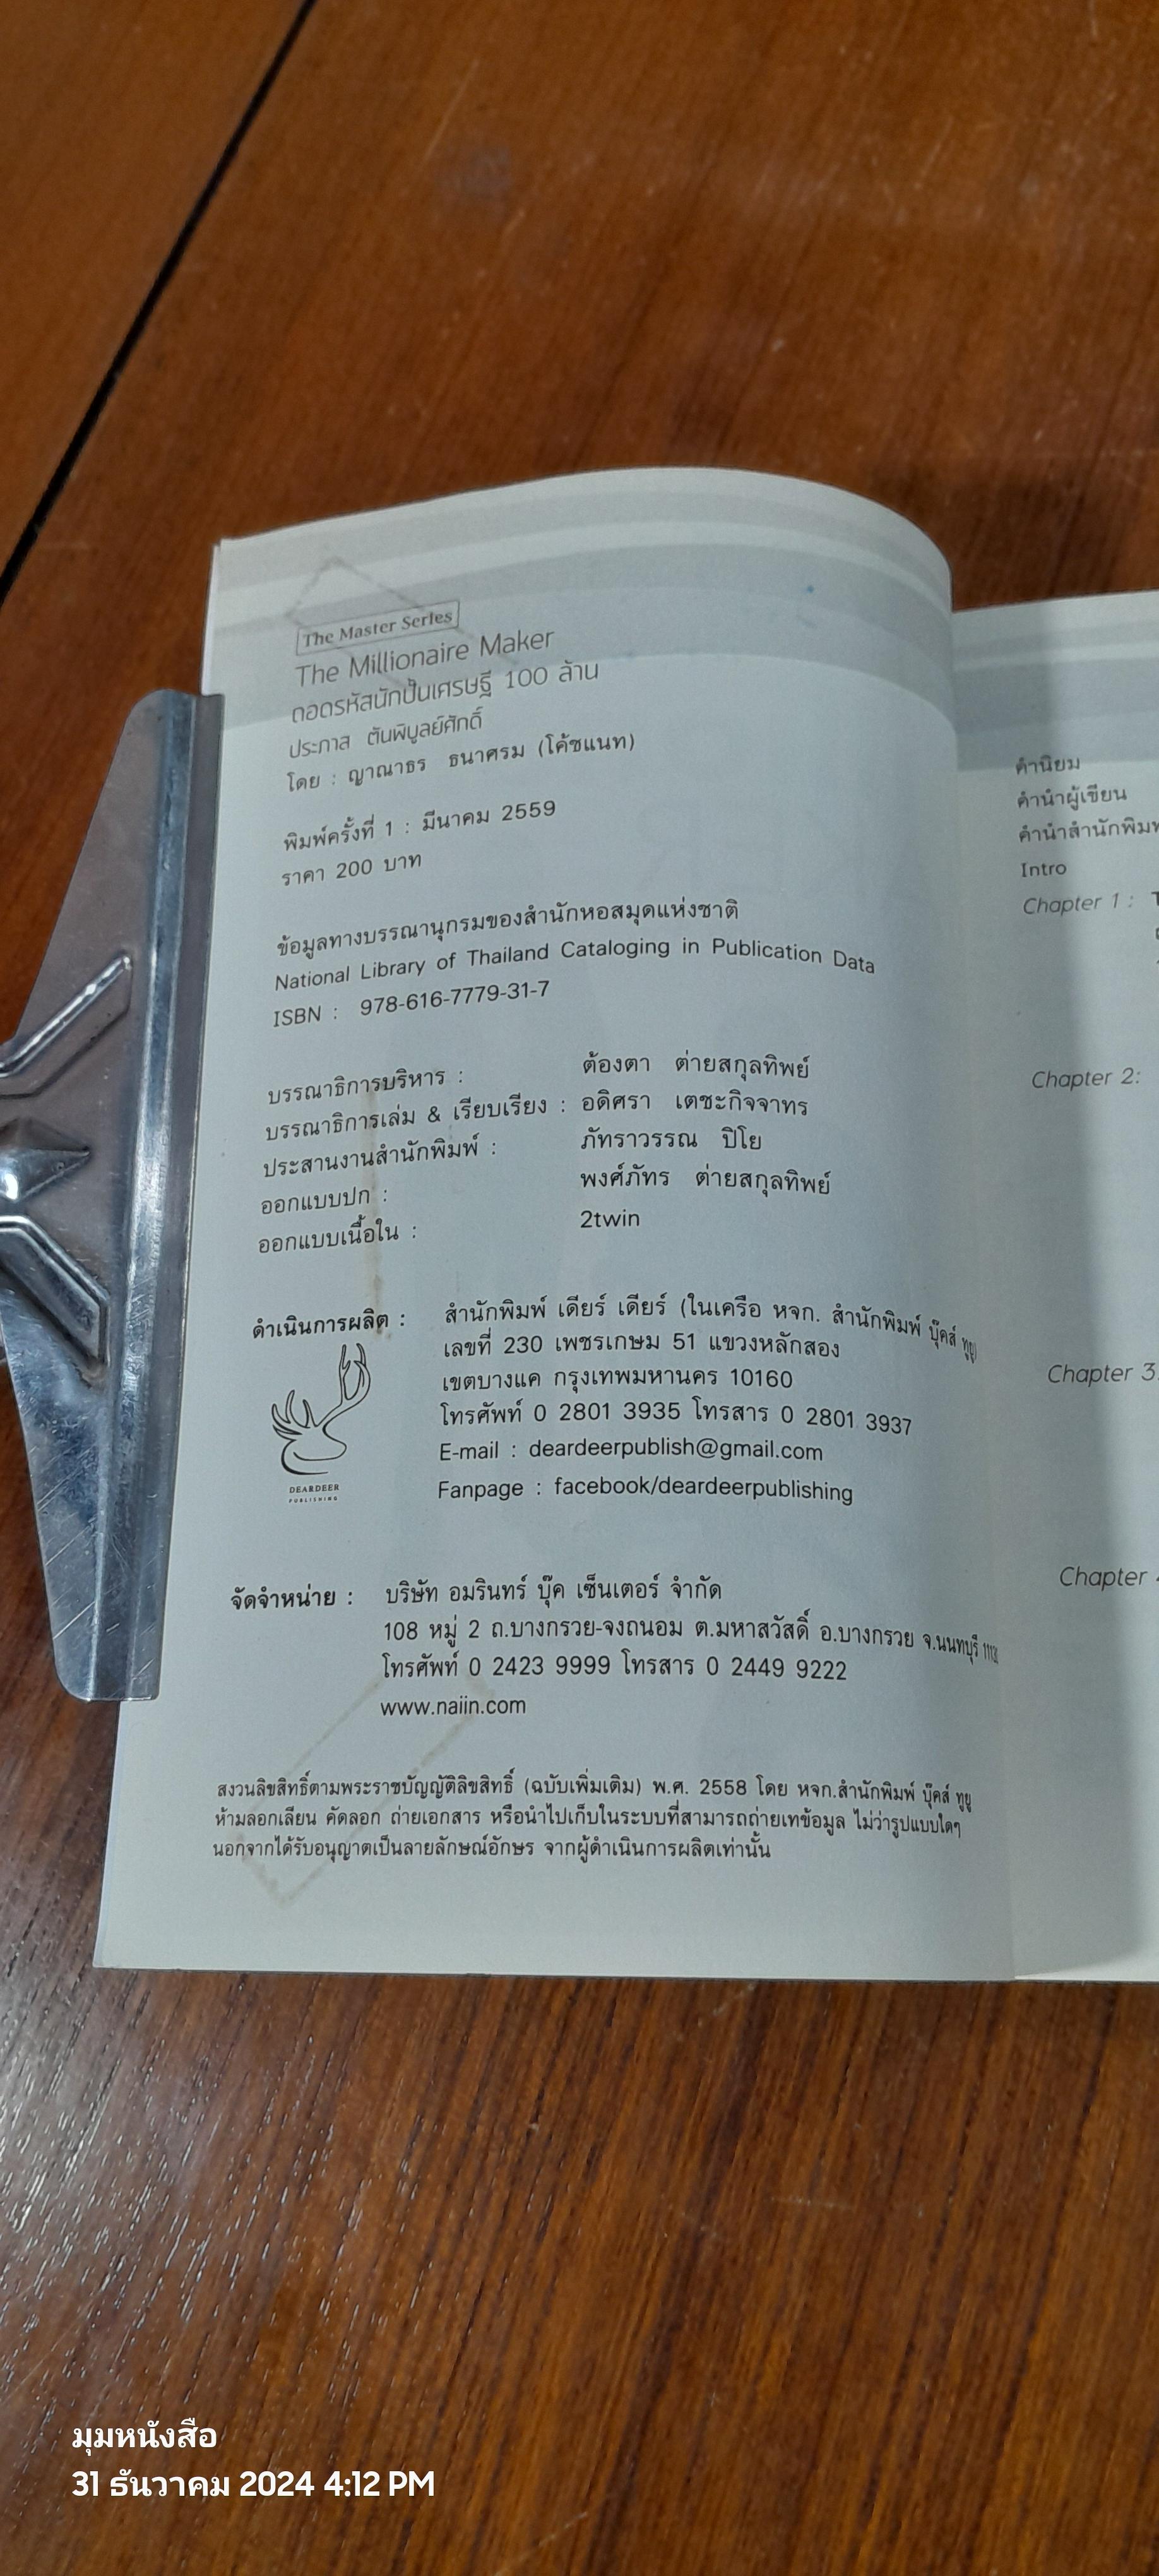 The Master Series
The Millionaire Maker
ถอดรหัสนักปั้นเศรษฐี 100 ล้าน
ประภาส ตันพิบูลย์ศักดิ์
โดย : ญาณาธร ธนาศรม (โค้ชแนท)
พิมพ์ครั้งที่ 1 : มีนาคม 2559
ราคา 200 บาท
ข้อมูลทางบรรณานุกรมของสำนักหอสมุดแห่งชาติ
National Library of Thailand Cataloging in Publication Data
ISBN : 978-616-7779-31-7
บรรณาธิการบริหาร : ต้องตา ต่ายสกุลทิพย์
บรรณาธิการเล่ม & เรียบเรียง : อดิศรา เตชะกิจจาทร
ประสานงานสำนักพิมพ์ : ภัทราวรรณ ปิโย
ออกแบบปก : พงศ์ภัทร ต่ายสกุลทิพย์
ออกแบบเนื้อใน : 2twin
ดำเนินการผลิต : สำนักพิมพ์ เดียร์ เดียร์ (ในเครือ หจก. สำนักพิมพ์ บุ๊คส์ ทูยู)
เลขที่ 230 เพชรเกษม 51 แขวงหลักสอง
เขตบางแค กรุงเทพมหานคร 10160
โทรศัพท์ 0 2801 3935 โทรสาร 0 2801 3937
E-mail : deardeerpublish@gmail.com
Fanpage : facebook/deardeerpublishing
DEARDEER
PUBLISHING
จัดจำหน่าย : บริษัท อมรินทร์ บุ๊ค เซ็นเตอร์ จำกัด
108 หมู่ 2 ถ.บางกรวย-จงถนอม ต.มหาสวัสดิ์ อ.บางกรวย จ.นนทบุรี
โทรศัพท์ 0 2423 9999 โทรสาร 0 2449 9222
www.naiin.com
สงวนลิขสิทธิ์ตามพระราชบัญญัติลิขสิทธิ์ (ฉบับเพิ่มเติม) พ.ศ. 2558 โดย หจก.สำนักพิมพ์ บุ๊คส์ ทูยู
ห้ามลอกเลียน คัดลอก ถ่ายเอกสาร หรือนำไปเก็บในระบบที่สามารถถ่ายเทข้อมูล ไม่ว่ารูปแบบใดๆ
นอกจากได้รับอนุญาตเป็นลายลักษณ์อักษร จากผู้ดำเนินการผลิตเท่านั้น
คำนิยม
คำนำผู้เขียน
คำนำสำนักพิมพ
Intro
Chapter 1 :
Chapter 2:
Chapter 3
Chapter
มุมหนังสือ
31 ธันวาคม 2024 4:12 PM